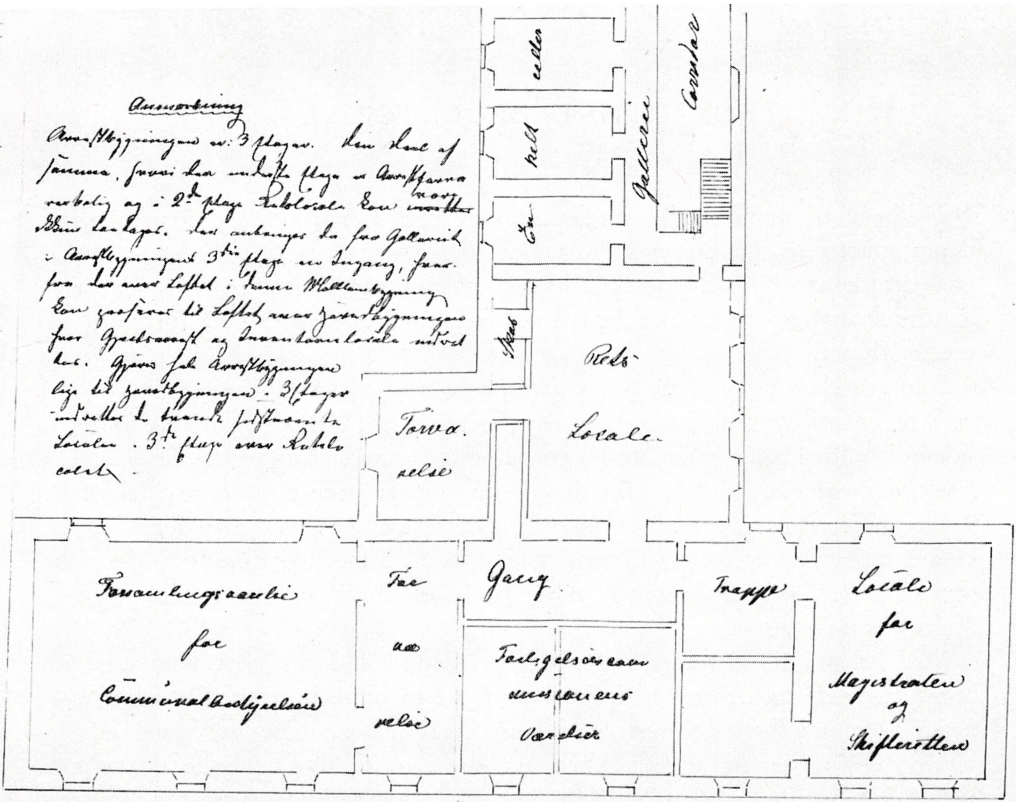 Anmærkning
Arrestbygningen er i 3 Etager. Den Deel af
samme, hvori den underste Etage er Arrestforva
og i 2den Etage Retslocale kan
Der anbringes da fra Galleriet
i Arrestbygningens 3die Etage en Indgang, hvor-
fra der over Loftet i denne Mellembygning
kan passeres til Loftet over
hvor Gjældsarrest og Inventarielocale indret
tes. Gjøres hele Arrestbygningen
lige til i 3 Etager
indrettes de tvende sidstnævnte
Localer i 3die Etage over Retslo
calet.
En
kelt
celler
Galleri
Corridor
Skab
Rets
Locale.
Forvæ.
relse
Forsamlingsværelse
for
Communalbestyrelsen
For
væ
relse
Gang
Forligelsescom
missionens
Værelser
Trappe
Locale
for
Magistraten
og
Skifteretten